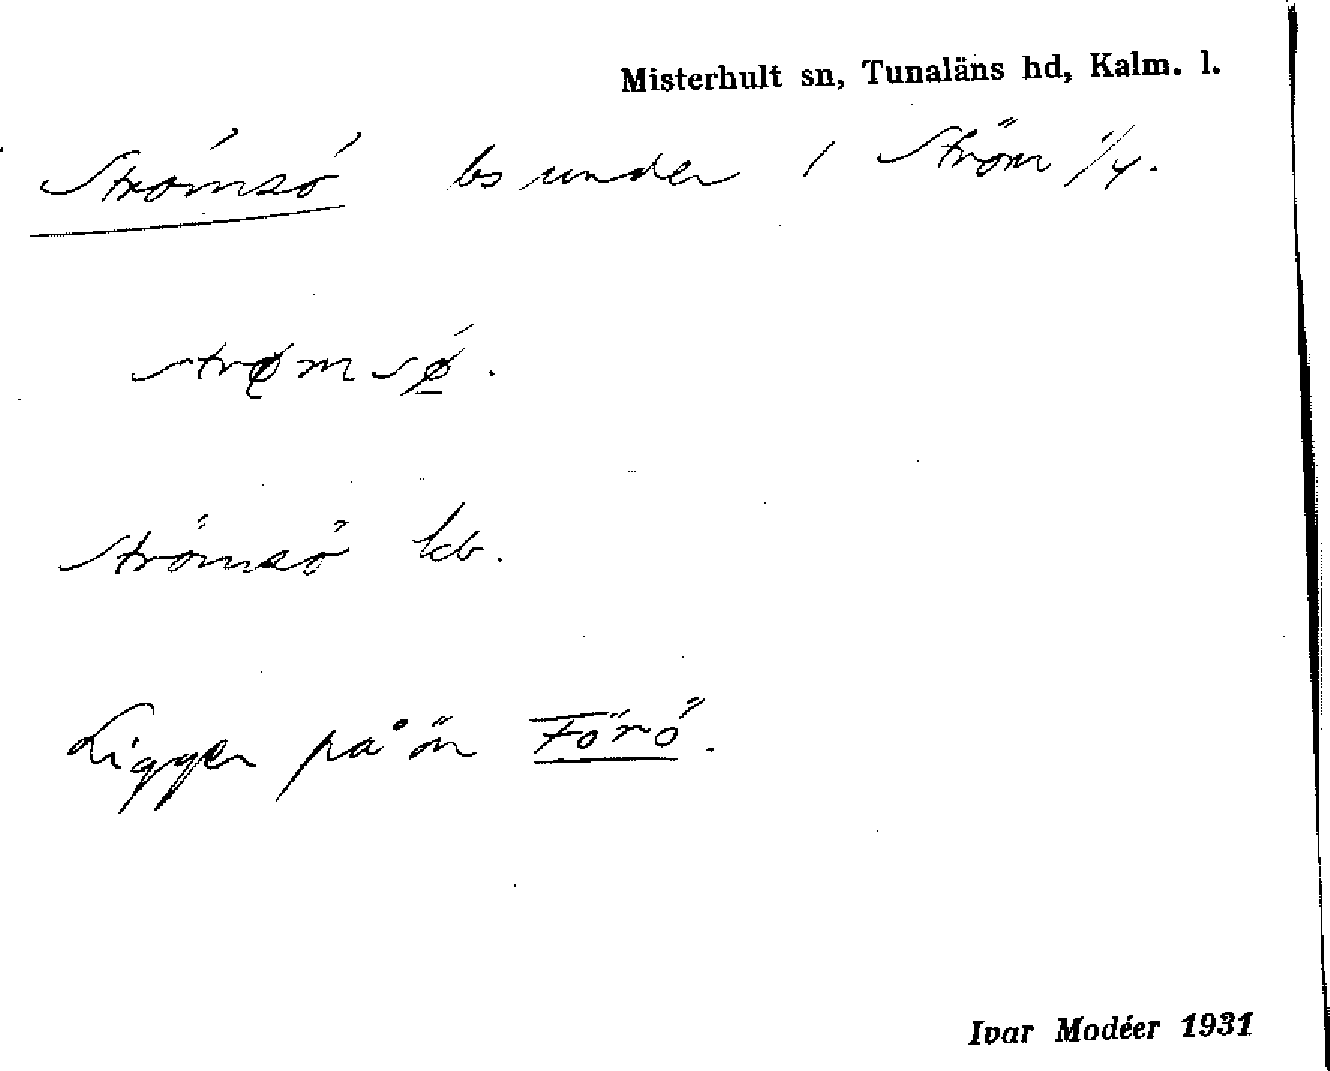 Misterhult sn, Tunaläns hd, Kalm. l.
Strömsö ls under 1 Ström 1/4.
strømsø.
Strömsö kb.
Ligger på ön Förö.
Ivar Modéer 1931